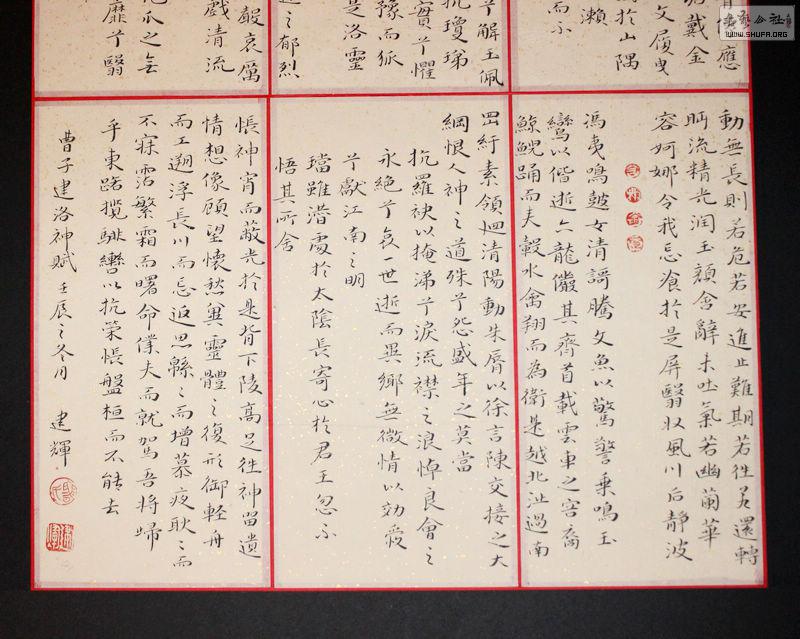 應
戴金
文履曳
於山隅
瀨
而不
兮解玉佩
抗瓊珶
實兮懼
豫而狐
是洛靈
之郁烈
聲哀厲
戲清流
之無
靡兮翳
動無長則若危若安進止難期若往若還轉
眄流精光潤玉顏含辭未吐氣若幽蘭華
容婀娜令我忘飡於是屏翳收風川后靜波
馮夷鳴皷女清謌騰文魚以驚警乘鳴玉
鸞以偕逝六龍儼其齊首載雲車之容裔
鯨鯢踊而夾轂水禽翔而為衛是越北沚過南
罡紆素領迴清陽動朱脣以徐言陳交接之大
綱恨人神之道殊兮怨盛年之莫當
抗羅袂以掩涕兮淚流襟之浪悼良會之
永絕兮哀一世逝而異鄉無微情以効愛
兮獻江南之明
璫雖潛處於太陰長寄心於君王忽不
悟其所舍
悵神宵而蔽光於是背下陵高足往神留遺
情想像顧望懷愁冀靈體之復形御輕舟
而上遡浮長川而忘返思綿々而增慕夜耿々而
不寐霑繁霜而曙命僕夫而就駕吾將歸
乎東路攬騑轡以抗策悵盤桓而不能去
曹子建洛神賦壬辰之冬月 建輝
WWW.SHUFA.ORG